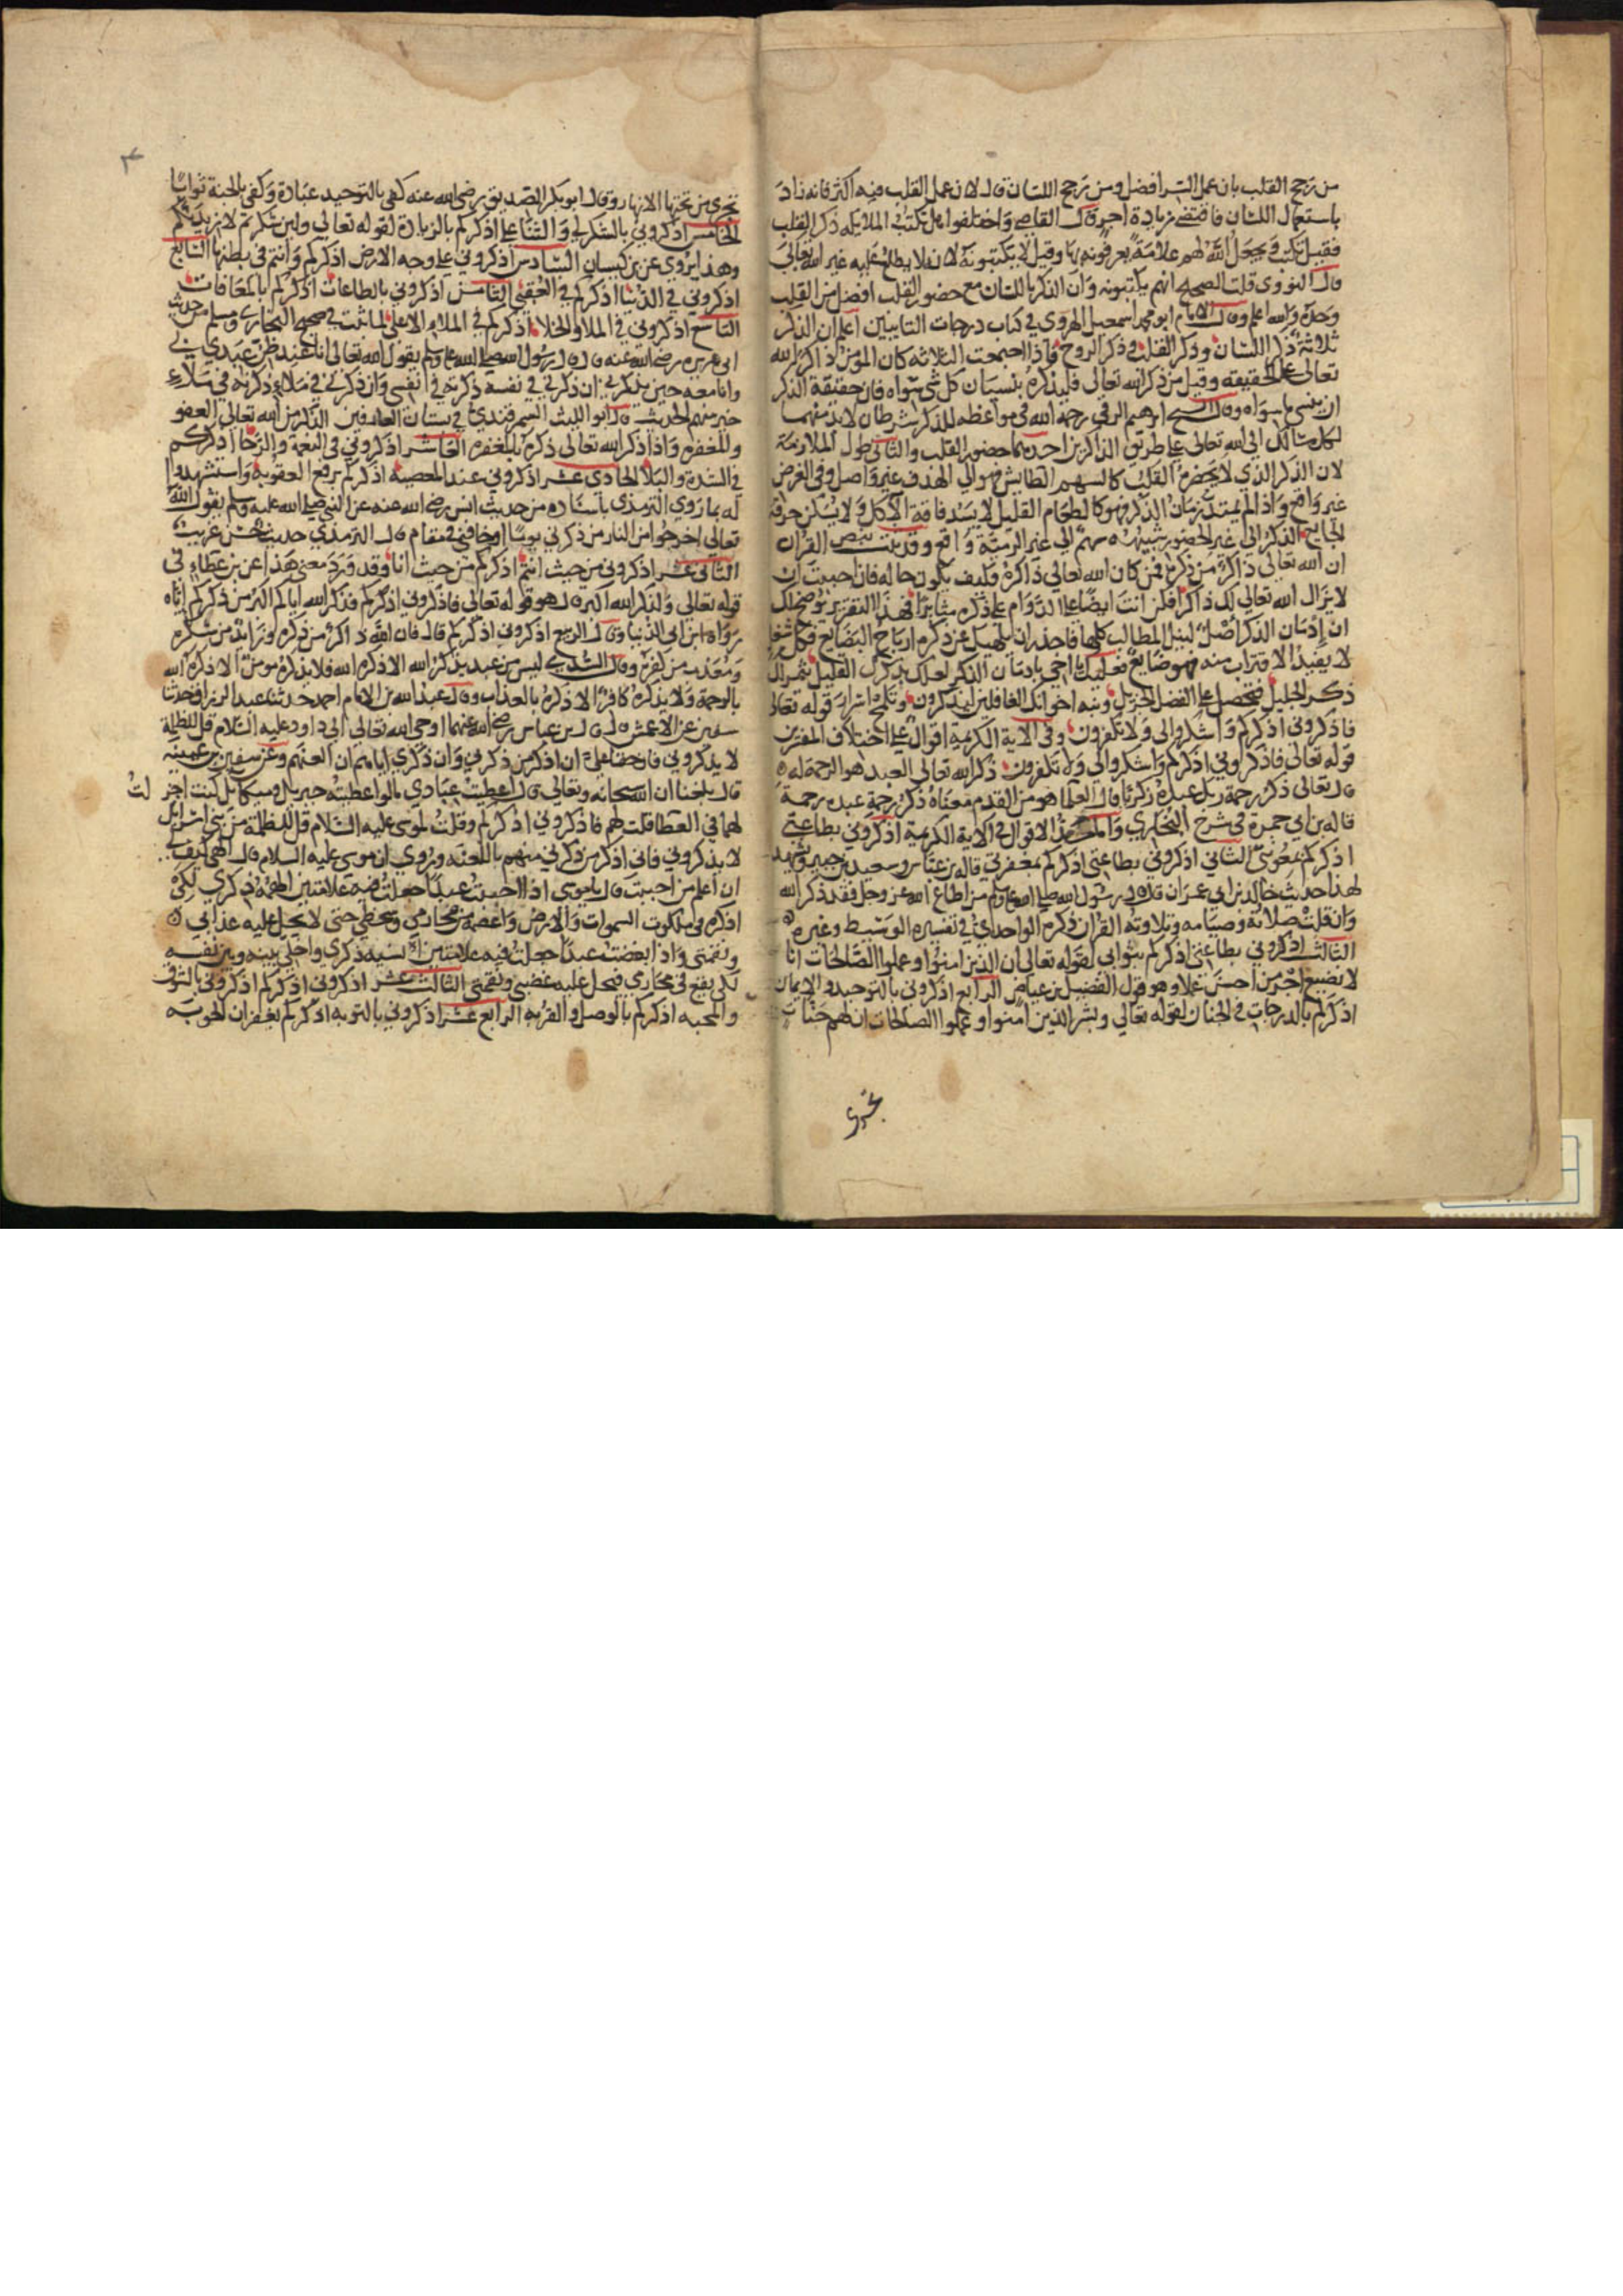 من رجح القلب بان عمل السر افضل ومن رجح اللسان قال لان عمل القلب فيه اكثر فانه زاد
باستعمال اللسان فاقتضى زيادة اجر قال القاضي واختلفوا هل تكتب الملايكه ذكر القلب
فقيل تكتبه ويجعل الله لهم علامة يعرفونه بها وقيل لا يكتبونه لانه لا يطلع عليه غير الله تعالى
قال النووي قلت الصحيح انهم يكتبونه وان الذكر باللسان مع حضور القلب افضل من القلب
وحده والله اعلم وقال الامام ابو محمد اسمعيل الهروي في كتاب درجات التايبين اعلم ان الذكر
ثلاثة ذكر اللسان وذكر القلب وذكر الروح فاذا اجتمعت الثلاثه كان المؤمن ذاكرا لله
تعالى على الحقيقه وقيل من ذكر الله تعالى فليذكره بنسيان كل شي سواه فان حقيقة الذكر
ان ينسى ما سواه وقال الشيخ ابرهيم الرقي رحمه الله في مواعظه للذكر شرطان لا بد منهما
لكل سالك الى الله تعالى على طريق الذاكرين احدهما حضور القلب والثاني طول الملازمة
لان الذكر الذي لا يحضره القلب كالسهم الطايش فهو الي الهدف غير واصل وفي الغرض
غير واقع واذا لم يمتد زمان الذكر فهو كالطعام القليل لا يسد فاقة الآكل ولا يسكن حرقة
الجايع الذكر الى غير الحضور شبيهه سهم الي غير الرمية واقع وقد ثبت بنص القران
ان الله تعالى ذاكر من ذكره فمن كان الله تعالى ذاكره وكيف يكون حاله فان احببت ان
لا يزال الله تعالى لك ذاكرا فكن انت ايضا على الدوام على ذكره مثابرا فهذا التقرير يوضح لك
ان إدمان الذكر اصل لنيل المطالب كلها فاحذر ان تلهيك عن ذكره ارباح البضايع فكل شغل
لا يفيد الاقتراب منه فهو ضايع فعليك يا اخي بادمان الذكر لعلك بذكرك القليل تثمر الى
ذكره الجليل فتحصل على الفضل الجزيل ونبه اخوانك الغافلين ليذكرون وتلمح اسرار قوله تعالى
فاذكروني اذكركم واشكروا لي ولا تكفرون وفي الاية الكريمة اقوال على اختلاف المفسرين
قوله تعالى فاذكروني اذكركم واشكروا لي ولا تكفرون ذكر الله تعالى العبد هو الرحمة له
قال تعالى ذكر رحمة ربك عبده زكريا قال العلما هو من المقدم معناه ذكر رحمة عبده رحمة
قاله بن ابي جمرة في شرح البخاري والمعتمد الاقوال في الاية الكريمة اذكروني بطاعتي
اذكركم بمعونتي الثاني اذكروني بطاعتي اذكركم بمغفرتي قاله بن عباس وسعيد بن جبير ويشهد
لهذا حديث خالد بن ابي عمران قال قال رسول الله صلى الله عليه وسلم من اطاع الله عز وجل فقد ذكر الله
وان قلت صلاته وصيامه وتلاوته القران ذكره الواحدي في تفسيره الوسيط وغيره
الثالث اذكروني بطاعتي اذكركم بثوابي لقوله تعالى ان الذين امنوا وعملوا الصالحات انا
لا نضيع اجر من احسن عملا وهو قول الفضيل بن عياض الرابع اذكروني بالتوحيد والايمان
اذكركم بالدرجات في الجنان لقوله تعالى وبشر الذين امنوا وعملوا الصالحات ان لهم جنات
تجري
تجري من تحتها الانهار وقال ابو بكر الصديق رضي الله عنه كفى بالتوحيد عبادة وكفى بالجنة ثوابا
الخامس اذكروني بالشكر لي والثنا علي اذكركم بالزيادة لقوله تعالى ولين شكرتم لازيدنكم
وهذا يروي عن بن كيسان السادس اذكروني على وجه الارض اذكركم وانتم في بطنها السابع
اذكروني في الدنيا اذكركم في العقبي الثامن اذكروني بالطاعات اذكركم بالمعافات
التاسع اذكروني في الملا والخلا اذكركم في الملاء الاعلى لما ثبت في صحيح البخاري ومسلم من حديث
ابي هريره رضي الله عنه قال قال رسول الله صلى الله عليه وسلم يقول الله تعالى انا عند ظن عبدي بي
وانا معه حين يذكرني ان ذكرني في نفسه ذكرته في نفسي وان ذكرني في ملاء ذكرته في ملاء
خير منهم الحديث قال ابو الليث السمرقندي في بستان العارفين الذكر من الله تعالى العفو
والمغفره واذا ذكر الله تعالى ذكره بالمغفره العاشر اذكروني في النعمة والرخا اذكركم
في الشدة والبلا الحادي عشر اذكروني عند المعصية اذكركم برفع العقوبة واستشهدوا
له بما روي الترمذي باسناده من حديث انس رضي الله عنه عن النبي صلى الله عليه وسلم يقول الله
تعالى اخرجوا من النار من ذكرني يوما او خافني في مقام قال الترمذي حديث حسن غريب
الثاني عشر اذكروني من حيث انتم اذكركم من حيث انا وقد ورد معنى هذا عن بن عطاء في
قوله تعالى ولذكر الله اكبر قال هو قوله تعالى فاذكروني اذكركم فذكر الله اياكم اكبر من ذكركم اياه
رواه ابن ابي الدنيا وقال الربيع اذكروني اذكركم قال فان الله ذاكر من ذكره وزايد من شكره
ومعذب من كفره وقال السدي ليس من عبد يذكر الله الا ذكره الله فلا يذكره مؤمن الا ذكره الله
بالرحمة ولا يذكره كافر الا ذكره بالعذاب وقال عبد الله بن الامام احمد حدثنا عبد الرزاق حدثنا
سفين عن الاعمش قال قال بن عباس رضي الله عنهما اوحى الله تعالى الى داود عليه السلام قل للظلمة
لا يذكروني فان حقا علي ان اذكر من ذكرني وان ذكري اياهم ان العنهم وعن سفين بن عيينه
قال بلغنا ان الله سبحانه وتعالى قال اعطيت عبادي ما لو اعطيته جبريل وميكائيل كنت اجز لت
لهما في العطا قلت لهم فاذكروني اذكركم وقلت لموسى عليه السلام قل للظلمة من بني اسرائيل
لا يذكروني فاني اذكر من ذكرني منهم باللعنه وروي ان موسى عليه السلام قال الهي كيف لي
ان اعلم من احببت قال يا موسى اذا احببت عبدا جعلت فيه علامتين الهمه ذكري لكي
اذكره في ملكوت السموات والارض واعصمه من محارمي وسخطي حتى لا يحل عليه عذابي
ونقمتي واذا ابغضت عبدا جعلت فيه علامتين انسيه ذكري واخلي بينه وبين نفسه
لكي يقع في محارمي فيحل عليه غضبي ونقمتي الثالث عشر اذكروني اذكركم اذكروني بالشوق
والمحبه اذكركم بالوصل والقربه الرابع عشر اذكروني بالتوبه اذكركم بغفران الحوبه